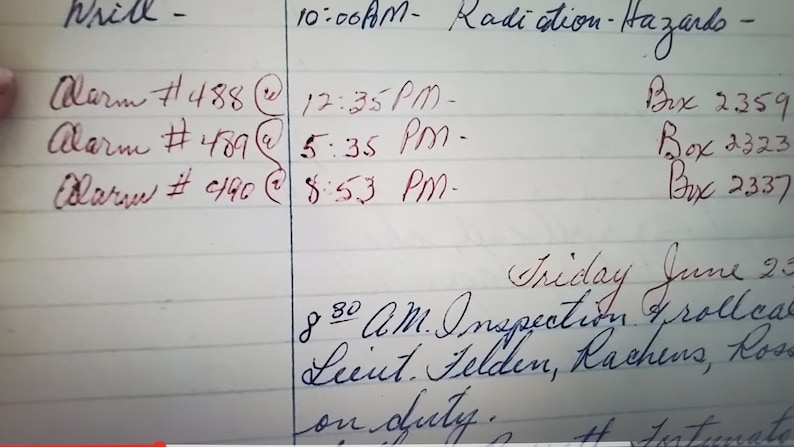 Drill - 10:00 AM - Radiation - Hazards -
Alarm # 488 @ 12:35 PM - Box 2359
Alarm # 489 @ 5:35 PM - Box 2323
Alarm # 490 @ 8:53 PM - Box 2337
Friday June 23
8 30 A.M. Inspection & rollcal
Lieut. Felden, Rachens, Ross
on duty.